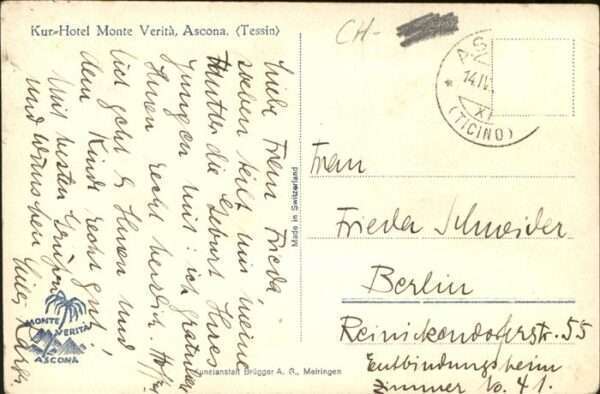 Kur-Hotel Monte Verità, Ascona. (Tessin)
CH-
AS
14.IV.
XI
(TICINO)
Liebe Frau Frieda,
soeben teilt mir meine
Mutter die Geburt Ihres
Jungen mit: ich gratuliere
Ihnen recht herzlich. Hoffent-
lich geht es Ihnen und
dem Kinde recht gut!
Mit besten Grüßen
und Wünschen
MONTE VERITA
ASCONA
Made in Switzerland
Kunstanstalt Brügger A. G., Meiringen
Frau
Frieda Schneider
Berlin
Reinickendorferstr. 55
Entbindungsheim
Zimmer No. 41.